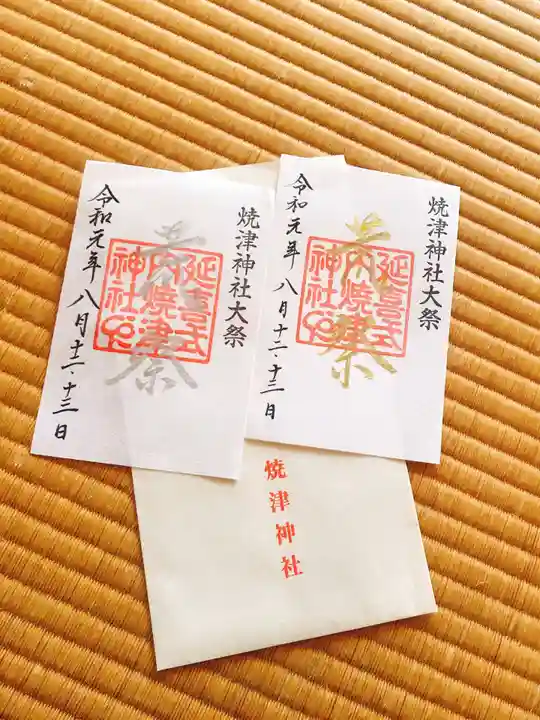 焼津神社大祭
荒祭
延喜式
内焼津
神社
令和元年 八月十二・十三日
焼津神社大祭
荒祭
延喜式
内焼津
神社
令和元年 八月十二・十三日
焼津神社